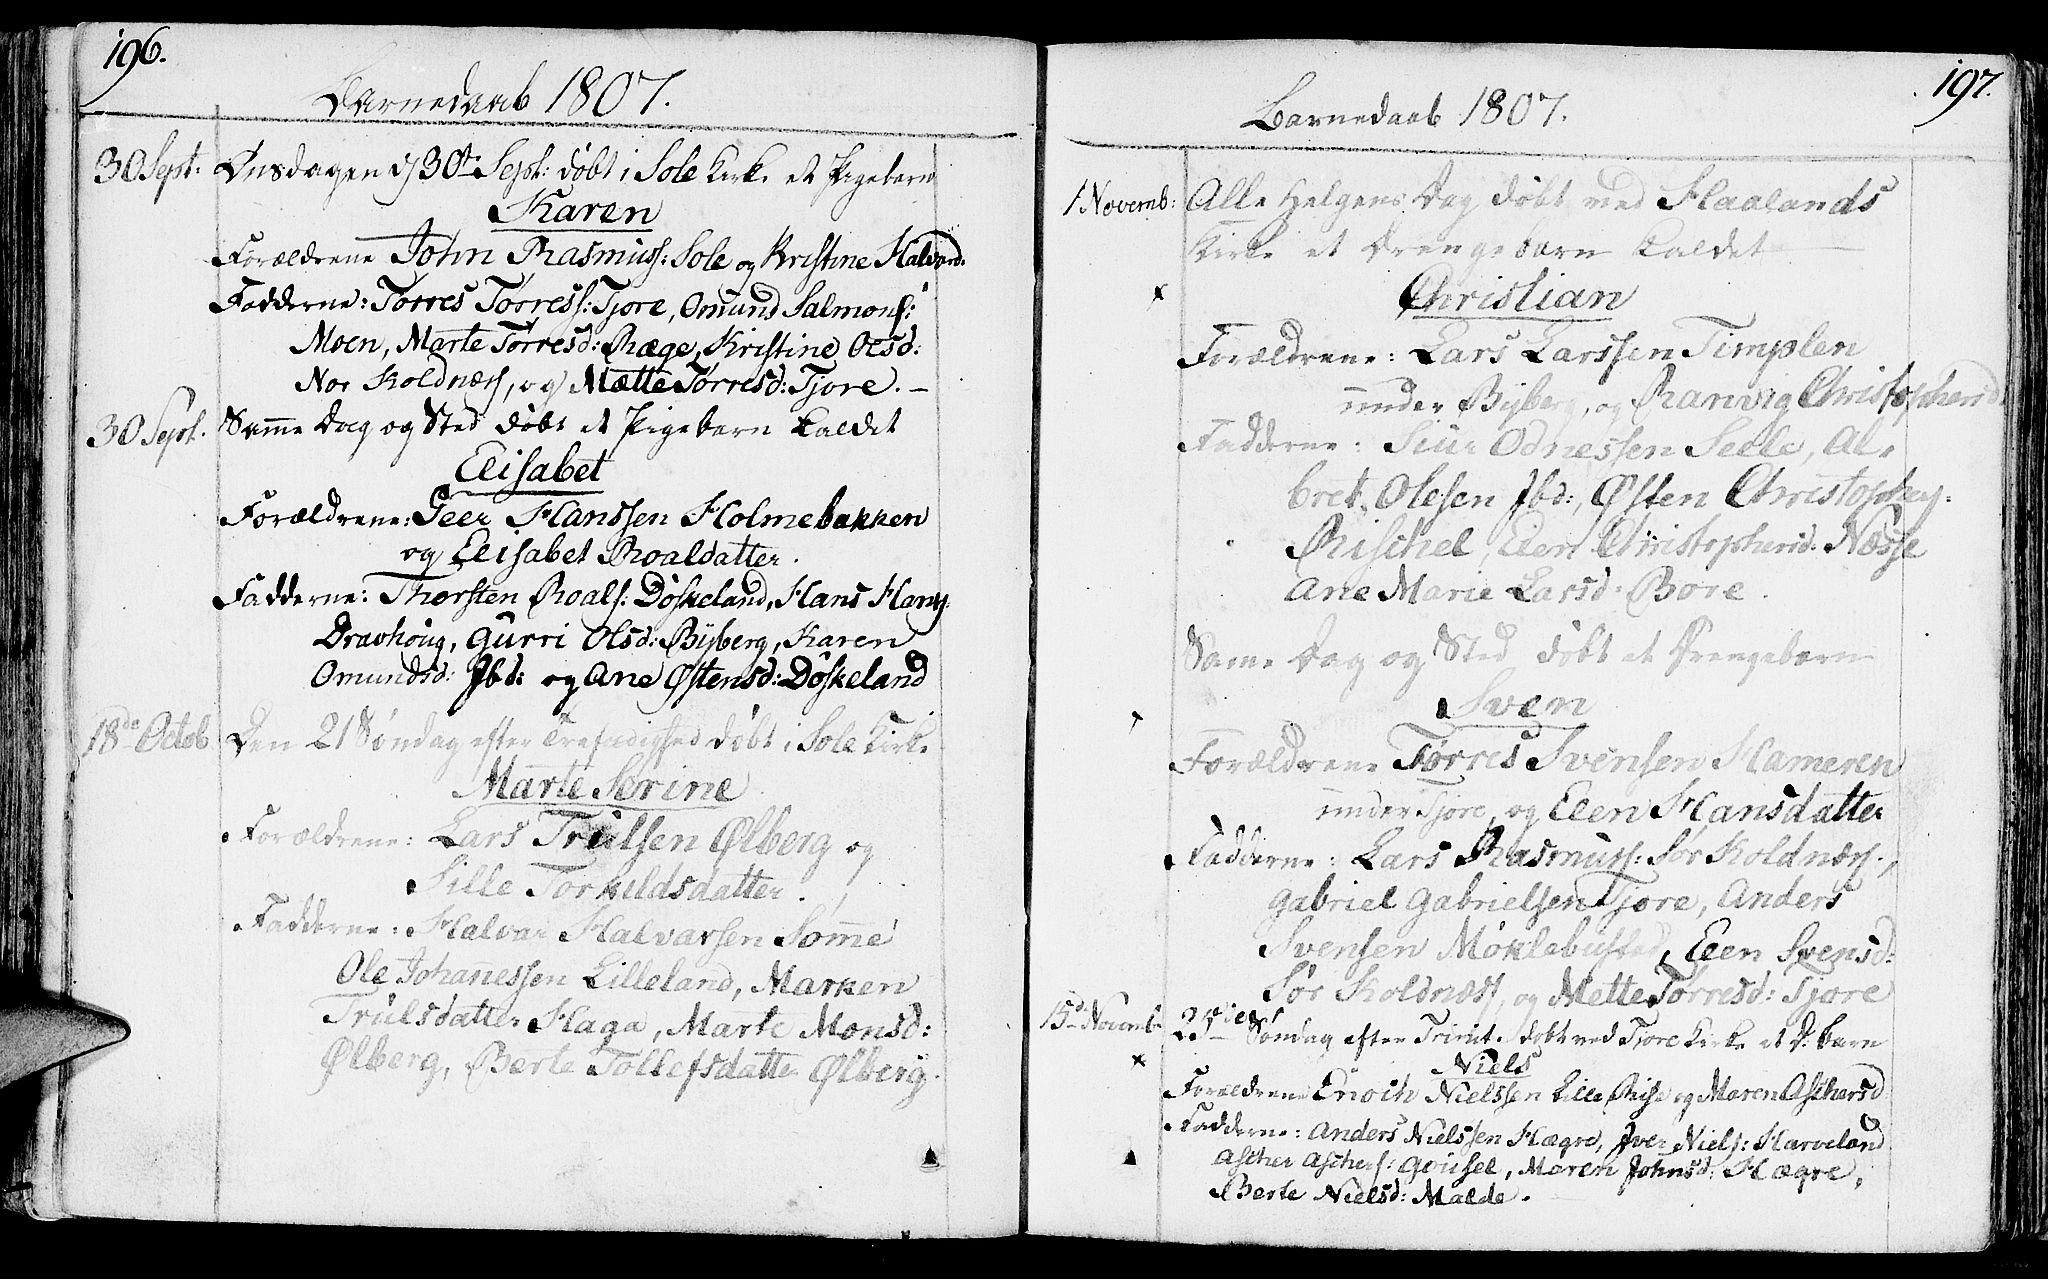 196.
Barnedaab 1807.
30 Sept: Onsdagen d 30te Sept: döbt i Sole Kirke et Pigebarn
Karen
Forældrene John Rasmuss: Sole og Kristine Halvard:
Fadderne: Torres Torress: Tjore, Omund Salmons:
Moen, Marte Torresd: Ræge, Kristine Olsd:
Nor Koldnæss, og Mætte Torresd: Tjore. –
30 Sept. Samme Dag og Sted döbt et Pigebarn kaldet
Elisabet
Forældrene: Geer Hanssen Holmebakken
og Elisabet Roaldatter.
Fadderne: Thorsten Roals: Döskeland, Hans Hans:
Dravhoug, Gurri Olsd: Byberg, Karen
Omundsd: Jbd: og Ane Østensd: Döskeland
18de Octob Den 21 Söndag efter Trefoldighed döbt i Sole Kirke
Marte Serine
Forældrene: Lars Trulsen Ølberg og
Sille Torkildsdatter.
Fadderne: Halvar Halvarsen Somme
Ole Johannessen Lilleland, Marken
Trulsdatter Haga, Marte Monsd:
Ølberg, Berte Tollefsdatter Ølberg.
197.
Barnedaab 1807.
1 Novemb: Alle Helgens Dag döbt ved Haalands
Kirke et Drengebarn kaldet
Christian
Forældrene: Lars Larssen Timplen
under Byberg, og Ranvig Christophersd
Fadderne: Siur Odnessen Seele, Al-
bret Olesen Jbd:, Østen Christophers:
Rischel, Elen Christophersd: Næsse
Ane Marie Larsd: Bore.
Same Dag og Sted döbt et Drengebarn
Sven
Forældrene Törres Svensen Hameren
under Tjore, og Elen Hansdatter
Fadderne: Lars Rasmuss: Sör Koldnæss.,
Gabriel Gabrielsen Tjore, Anders
Svensen Möklebusted, Elen Svensd:
Sör Koldnæss, og Mette Torresd: Tjore
15de Novemb 25de Söndag efter Trinit. döbt ved Tjore Kirke et D: barn
Niels
Forældrene Enoch Nielssen Lille Rise og Maren Aschersd
Fadderne: Anders Nielssen Hægre, Jver Niels: Harveland
Ascher Aschers: Gousel, Maren Johnsd: Hægre,
Berte Nielsd: Malde.